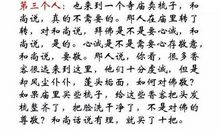 第三个人：也来到一个寺庙卖梳子，和
尚说，真的不需要的。那人在庙里转了
转，对和尚说，拜佛是不是要心诚，和
尚说，是的。心诚是不是需要心存敬意，
和尚说，要敬。那人说，你看，很多香
客很远来到这里，他们十分虔诚，但是
却风尘仆仆，蓬头垢面，如何对佛敬？
如果庙里买些梳子，给这些香客把头发
梳整齐了，把脸洗干净了，不是对佛的
尊敬？和尚话说有理，就买了十把。